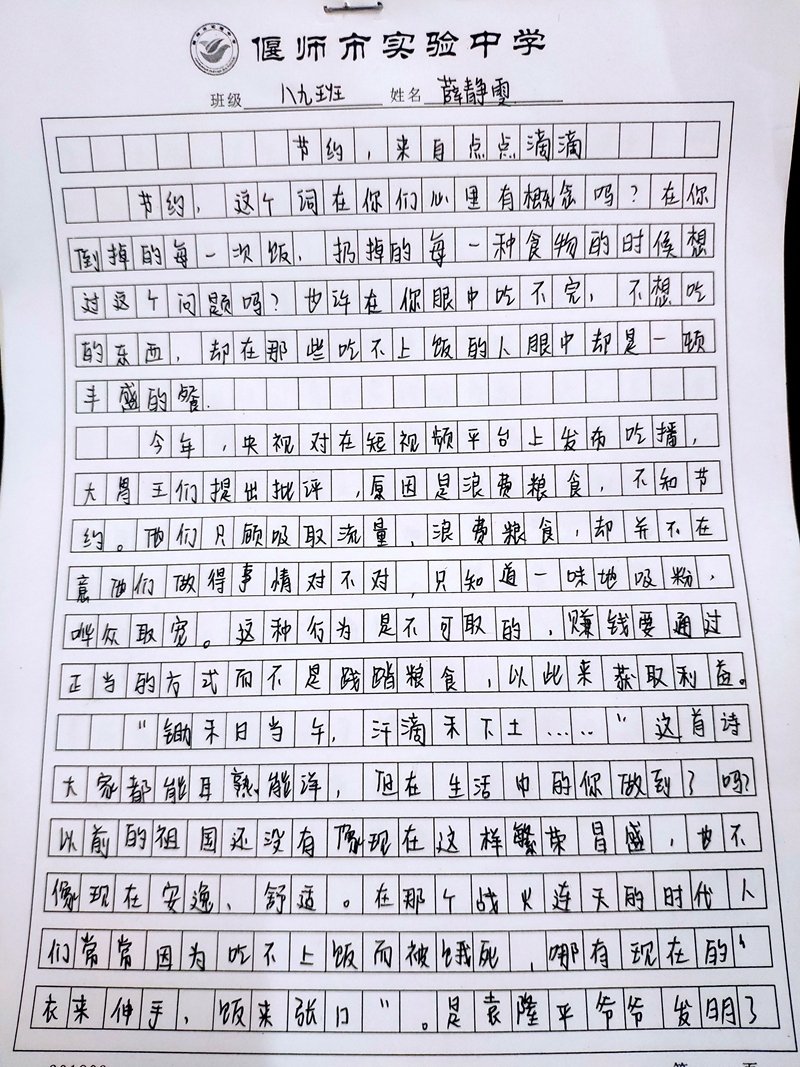 偃师市实验中学
班级 八九班 姓名 薛静雯
节约，来自点点滴滴
节约，这个词在你们心里有概念吗？在你
倒掉的每一次饭，扔掉的每一种食物的时候想
过这个问题吗？也许在你眼中吃不完，不想吃
的东西，却在那些吃不上饭的人眼中却是一顿
丰盛的餐.
今年，央视对在短视频平台上发布吃播，
大胃王们提出批评，原因是浪费粮食，不知节
约。他们只顾吸取流量，浪费粮食，却并不在
意他们做得事情对不对，只知道一味地吸粉，
哗众取宠。这种行为是不可取的，赚钱要通过
正当的方式而不是践踏粮食，以此来获取利益。
“锄禾日当午，汗滴禾下土……”这首诗
大家都能耳熟能详，但在生活中的你做到了吗？
以前的祖国还没有像现在这样繁荣昌盛，也不
像现在安逸、舒适。在那个战火连天的时代人
们常常因为吃不上饭而被饿死，哪有现在的“
衣来伸手，饭来张口”。是袁隆平爷爷发明了